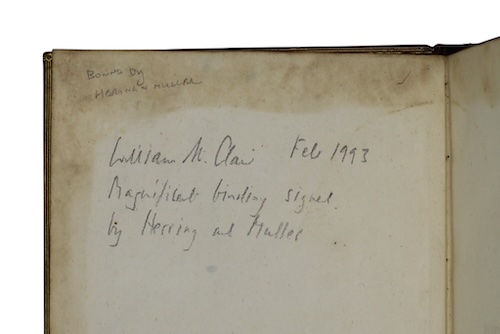 Bound by
Hering & Muller
William St. Clair Feb 1993
Magnificent binding signed
by Herring and Muller